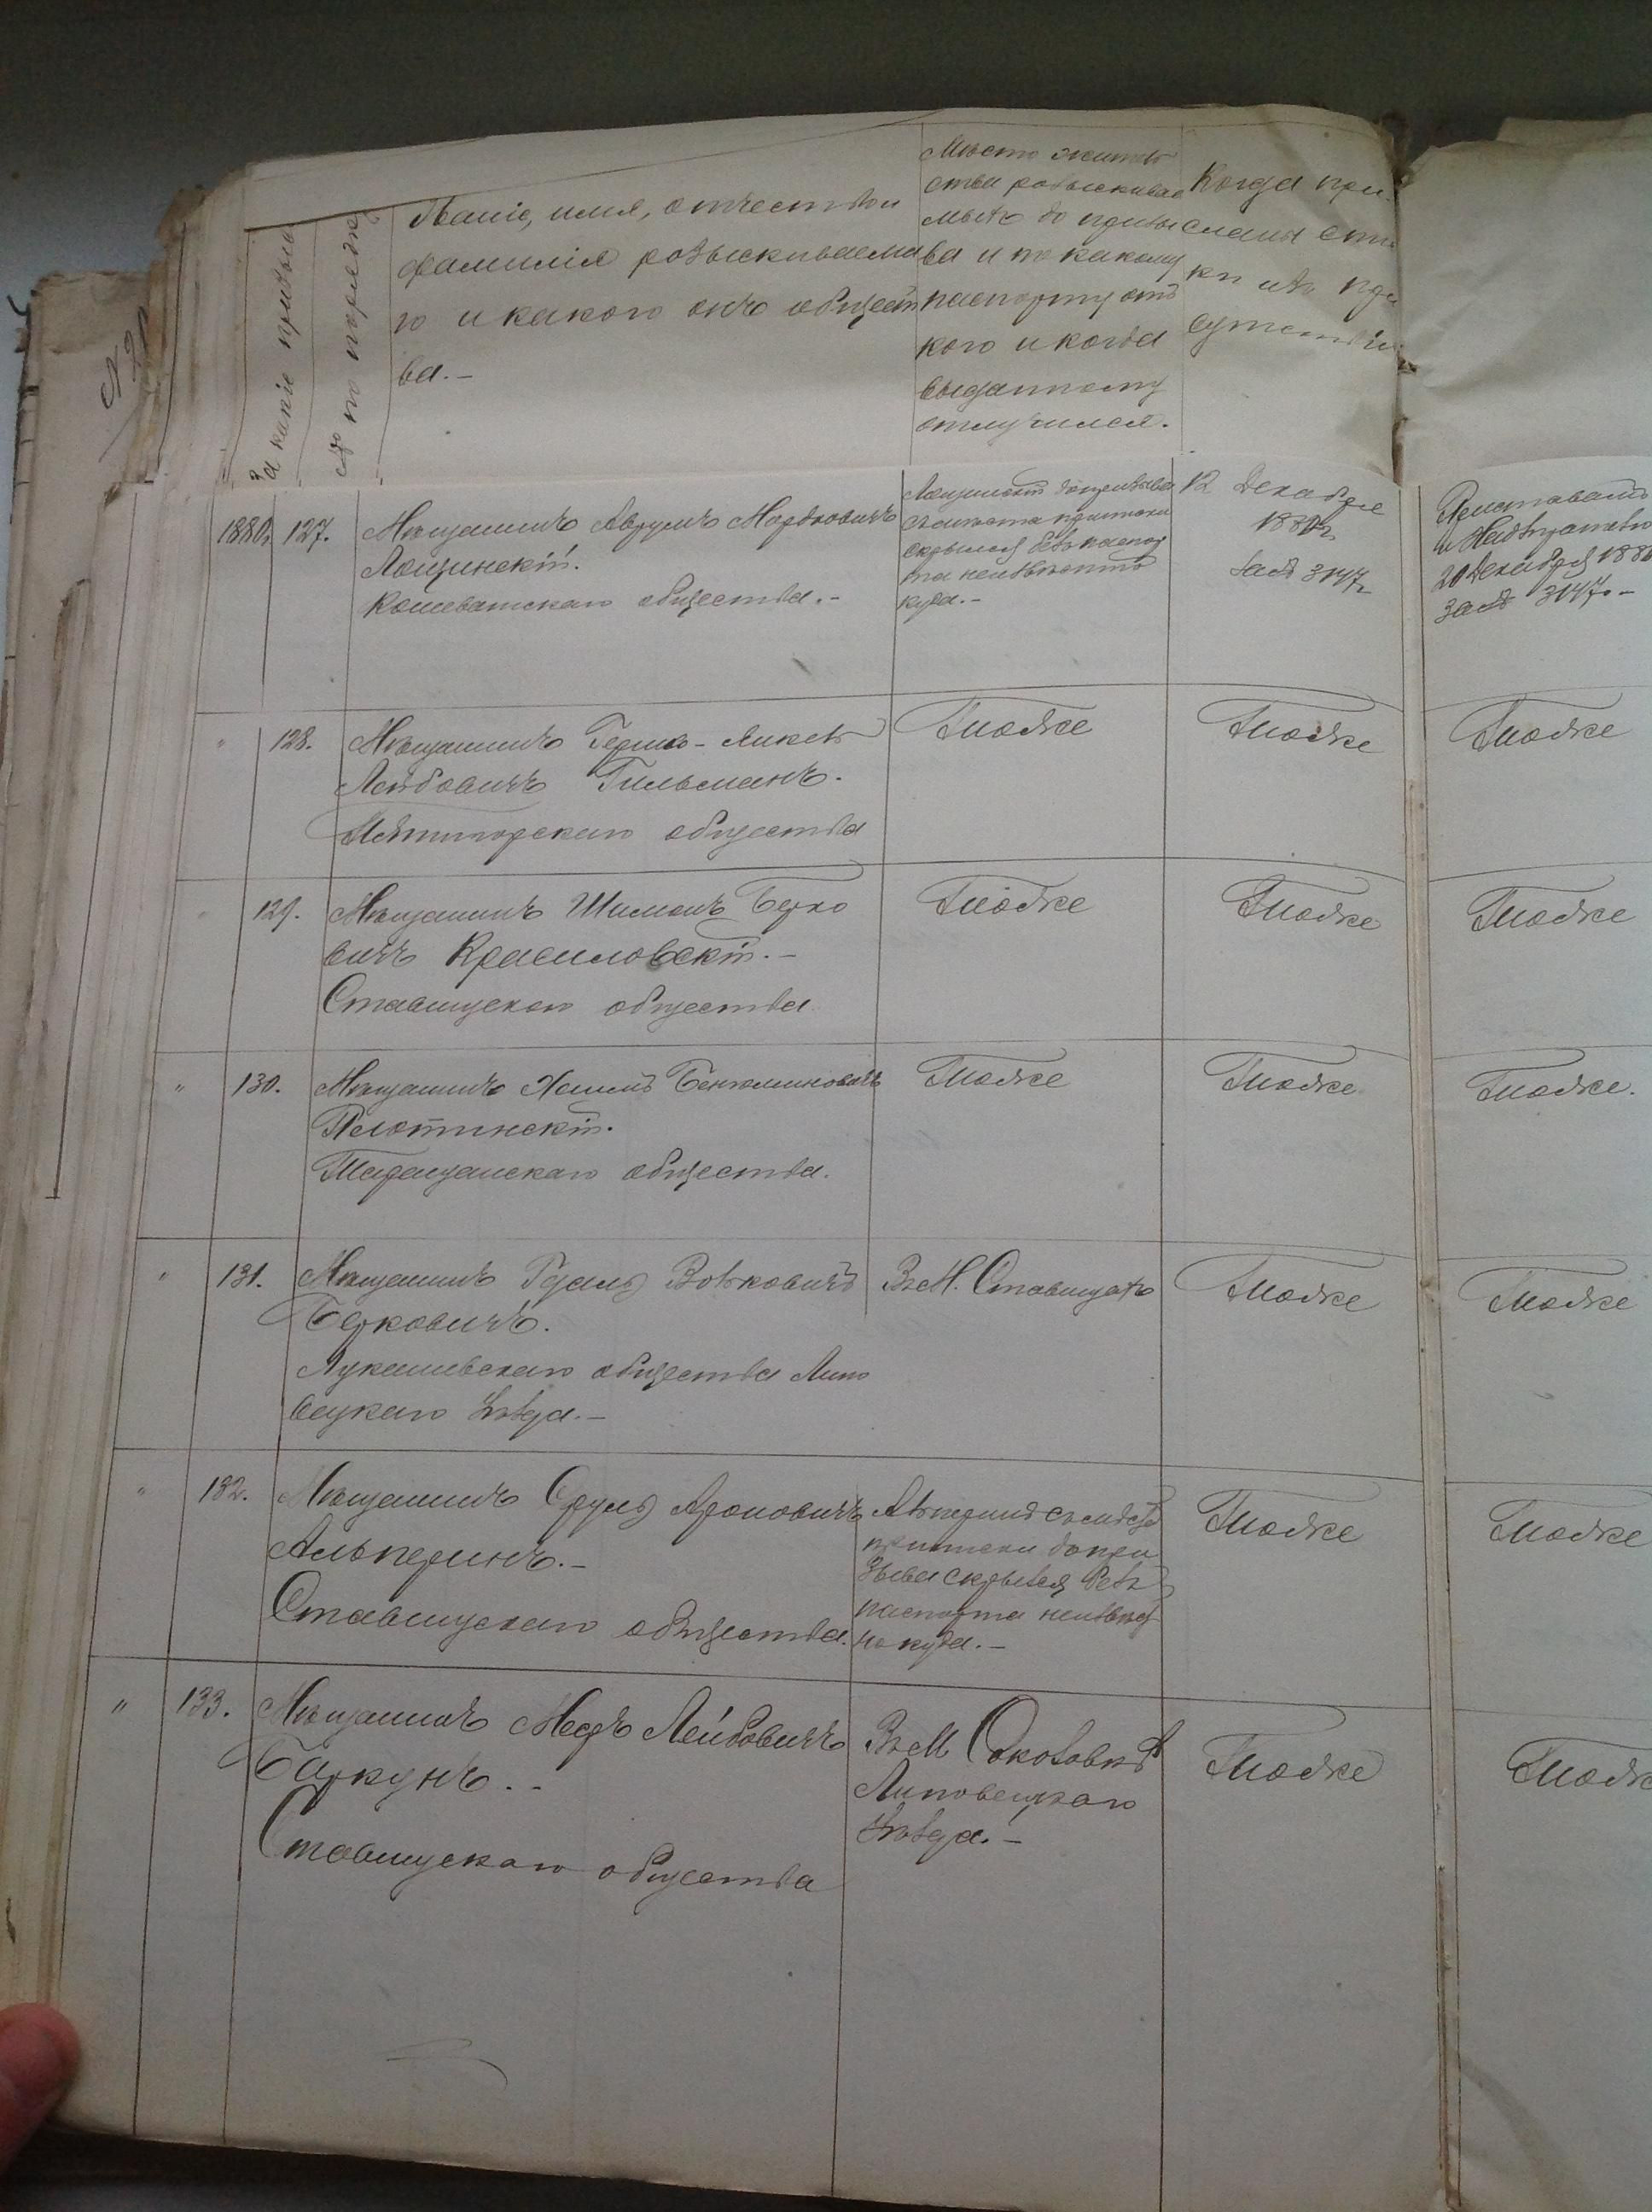 За какіе призывы
№ по порядку
Званіе, имя, отчество и
фамилія розыскиваема
го и какого онъ общест
ва.-
Мѣсто житель
ства розыскивае
мыхъ до призы
ва и по какому
паспорту отъ
кого и когда
выданному
отлучился.
Когда при
сланы спис
ки изъ при
сутствія
1880г. 127.
Мѣщанинъ Аврумъ Мордковичъ
Лощинскій.
Кошеватскаго общества.-
Лощинскій до призыва
съ мѣста приписки
скрылся безъ паспор
та неизвѣстно
куда.-
12 Декабря
1880г.
за № 3147
Приставамъ
и Надзирателю
20 Декабря 188
за № 3147.-
" 128.
Мѣщанинъ Гершко-
Лейбовичъ Гильманъ.
Пятигорскаго общества
Тоже
Тоже
Тоже
" 129.
Мѣщанинъ Шимонъ Берко
вичъ Красиловскій.-
Ставищскаго общества
Тоже
Тоже
Тоже
" 130.
Мѣщанинъ Хаимъ Беньяминовичъ
Плотинскій.
Таращанскаго общества.
Тоже
Тоже
Тоже.
" 131.
Мѣщанинъ Вольковичъ
Берковичъ.
Лукашевскаго общества Липо
вецкаго Уѣзда.-
Въ М. Ставищахъ
Тоже
Тоже
" 132.
Мѣщанинъ Сруль Ароновичъ
Альперинъ.-
Ставищскаго общества.
Альперинъ съ мѣста
приписки до при
зыва скрылся безъ
паспорта неизвѣст
но куда.-
Тоже
Тоже
" 133.
Мѣщанинъ Мееръ Лейбовичъ
Баркунъ.-
Ставищскаго общества
Въ М Соколовкѣ
Липовецкаго
Уѣзда.-
Тоже
Тоже